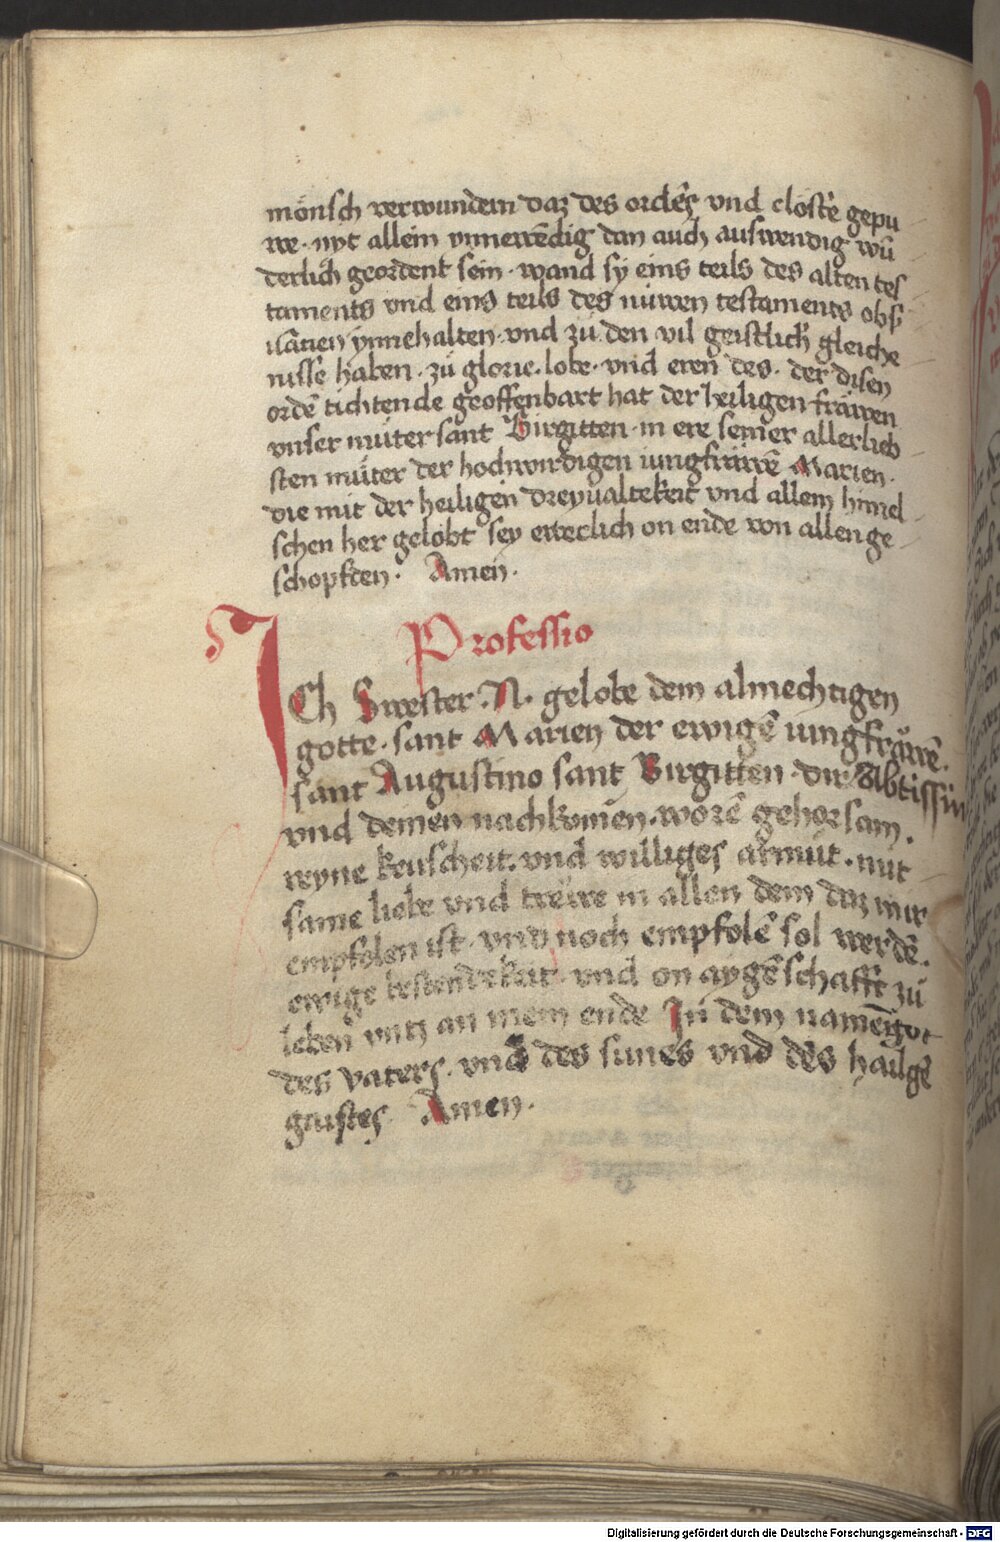 mönsch verwundern daz des ordēs vnd clöstē gepu
we · nyt allein ynnewēdig dan auch auswendig wū
derlich geordent sein · wand sy eins teils des alten tes
taments vnd eins teils des nüwen testaments obs
uāncien ynnehalten · vnd zů den vil geistlich gleiche
nisse haben · zů glorie · lobe · vnd eren des · der disen
ordē tichtende geoffenbart hat der heiligen fräwen
vnser můter sant Birgitten in ere seiner allerlieb
sten můter der hochwirdigen iungfräwē Marien ·
die mit der heiligen dreyualtekeit vnd allem himel
schen her gelobt sey eweclich on ende von allen ge
schopften · Amen ·
Professio
ICh Swester · N · gelobe dem almechtigen
gotte · sant Marien der ewigē iungfräwē ·
sant Augustino sant Birgitten · dir Abtissin
vnd deinen nachkomen · worē gehorsam ·
reyne keuscheit · vnd williges armůt · mit
same liebe vnd trewe in allen dem daz mir
empfolen ist · vnd noch empfolē sol werdē ·
ewige bestendekeit · vnd on aygēschafft zů
leben vntz an mein ende In dem namē got
des vaters · vnd des sunes vnd des hailgē
gaistes Amen ·
Digitalisierung gefördert durch die Deutsche Forschungsgemeinschaft - DFG